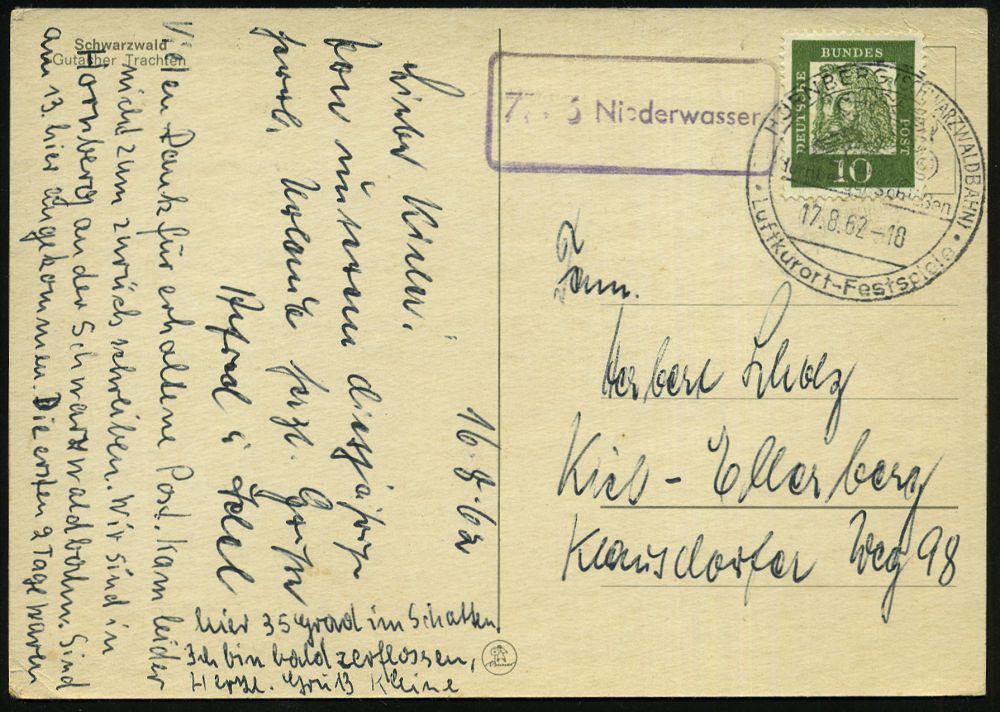 Schwarzwald
Gutacher Trachten
16.8.62
Liebe Kinder!
von unserem diesjährigen
Urlaub herzl. Grüße
Alfred u. Edel
Vielen Dank für erhaltene Post. Kam leider
nicht zum zurück schreiben. Wir sind in
Hornberg an der Schwarzwaldbahn. Sind
am 13. hier angekommen. Die ersten 2 Tage waren
hier 35 Grad im Schatten
Ich bin bald zerflossen,
Herzl. Gruß Kleine
Niederwasser
DEUTSCHE
BUNDES
POST
10
HORNBERG (SCHWARZWALDBAHN)
Schießen
17.8.62-18
Luftkurort-Festspiele
Fam.
Herbert Scholz
Kiel-Ellerberg
Klausdorfer Weg 98